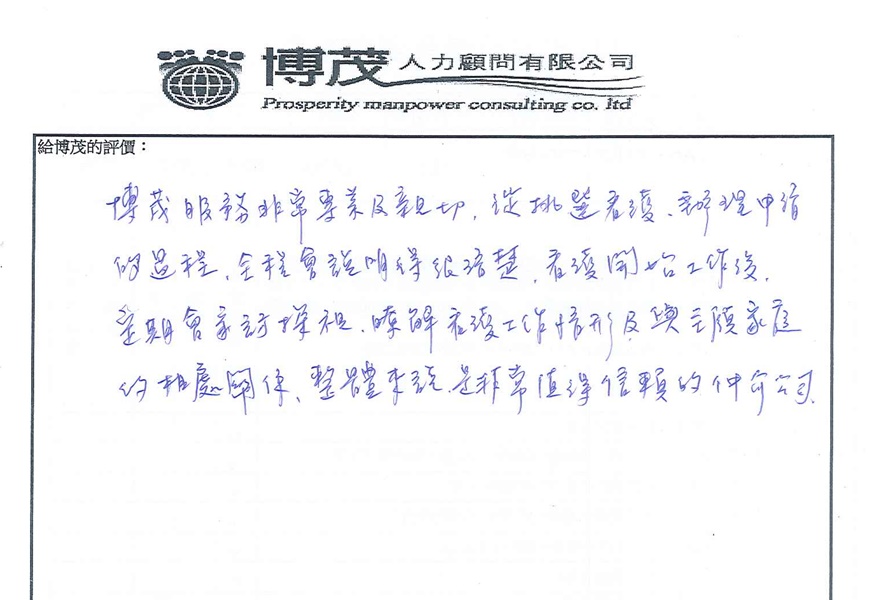 博茂人力顧問有限公司
Prosperity manpower consulting co. ltd
給博茂的評價：
博茂服務非常專業及親切，從挑選看護、辦理申請
的過程，全程會說明得很清楚，看護開始工作後，
定期會家訪探視，瞭解看護工作情形及與主顧家庭
的相處關係、整體來說，是非常值得信賴的仲介公司.